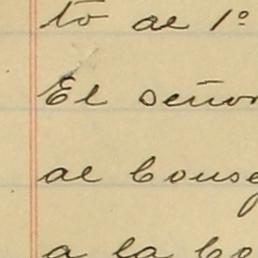 to al 1º
El señor
al Conse
a la Co